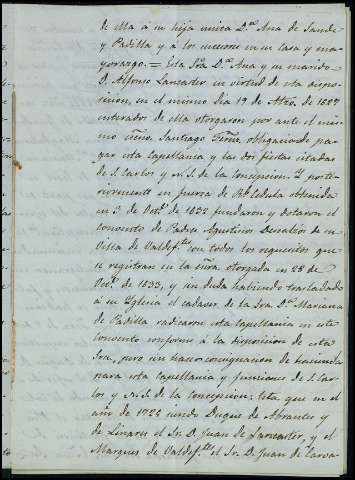 de ella á su hija unica D.ª Ana de Sande
y Padilla y á los sucesores en su casa y ma-
yorazgo. = Esta Sra. D.ª Ana y su marido
D. Alfonso Lancaster en virtud de esta dispo-
sicion, en el mismo dia 19 de de
enterados de ella otorgaron por ante el mis-
mo Santiago obligandose pa-
gar esta capellania y las dos fiestas citadas
de S. Carlos y N. S. de la Concepcion. Y poste-
riormente en fuerza de Rl. Cedula obtenida
en 3 de Octe. de 1632 fundaron y dotaron el
convento de Padres Agustinos Descalzos de su
Villa de Valdef.tes con todos los requisitos que
se registran en la otorgada en 28 de
de 1633, y sin duda habiendo trasladado
á su Yglesia el cadaver de la Sra. D.ª Mariana
de Padilla radicaron esta capellania en este
Convento conforme á la disposicion de esta
Sra., pero sin hacer consignacion de hacienda
para esta capellania y funciones de S. Car-
los y N. S. de la Concepcion: esta que en el
año de 1725 siendo Duque de Abrantes y
de Linares el Sr. D. Juan de Lancaster, y el
Marques de Valdef.tes el Sr. D. Juan de Carva-